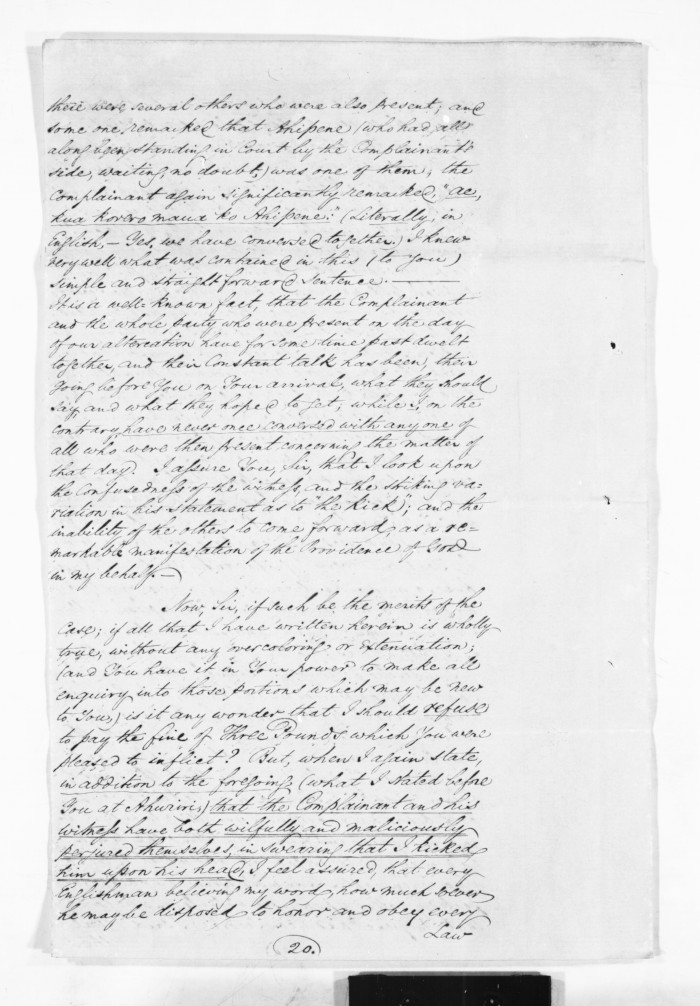 there were several others who were also present; and
some one remarked that Ahipene (who had, all
along been standing in Court by the Complainant's
side, waiting, no doubt,) was one of them, the
Complainant again significantly remarked, "ae,
kua korero maua ko Ahipene:" (Literally, in
English,– Yes, we have conversed together.) I knew
very well what was contained in this (to You)
simple and straightforward sentence.—
It is a well-known fact, that the Complainant
and the whole party who were present on the day
of our altercation have for some time past dwelt
together, and their Constant talk has been, their
going before You on Your arrival, what they should
say, and what they hoped to get; while I, on the
contrary, have never once conversed with any one of
all who were then present concerning the matter of
that day. I assure You, Sir, that I look upon
the Confusedness of the witness, and the striking va=
riation in his statement as to "the kick"; and the
inability of the others to come forward, as a re=
markable manifestation of the Providence of God
in my behalf.—
Now, Sir, if such be the merits of the
Case; if all that I have written herein is wholly
true, without any overcoloring or Extenuation;
(and You have it in Your power to make all
enquiry into those portions which may be new
to You,) is it any wonder that I should refuse
to pay the fine of Three Pounds which You were
pleased to inflict? But, when I again state,
in addition to the foregoing, (what I stated before
You at Ahuriri,) that the Complainant and his
witness have both wilfully and maliciously
perjured themselves, in swearing that I kicked
him upon his head, I feel assured, that every
Englishman believing my word, how much soever
he may be disposed to honor and obey every
Law
20.